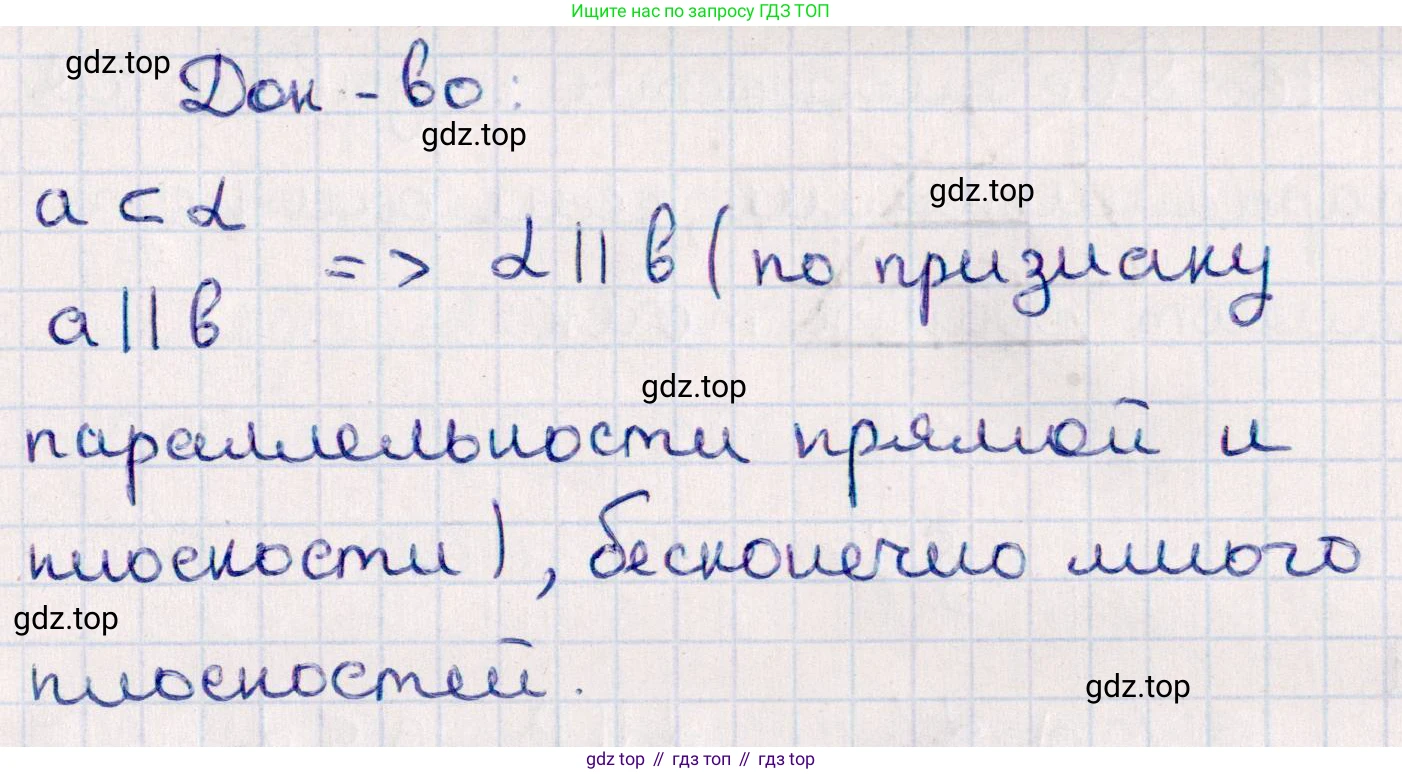 Ищите нас по запросу ГДЗ ТОП
gdz.top
Док-во:
gdz.top
a ⊂ α
gdz.top
=> α || b (по признаку
a || b
gdz.top
параллельности прямой и
плоскости), бесконечно много
gdz.top
плоскостей.
gdz.top
gdz top // гдз топ // gdz top